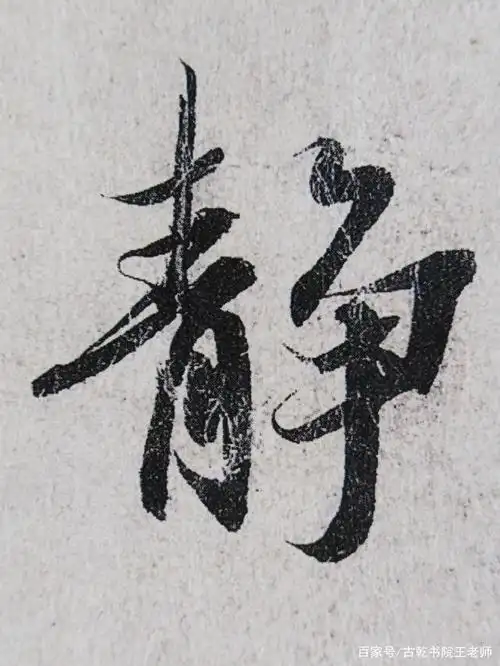 静
百家号/古乾书院王老师